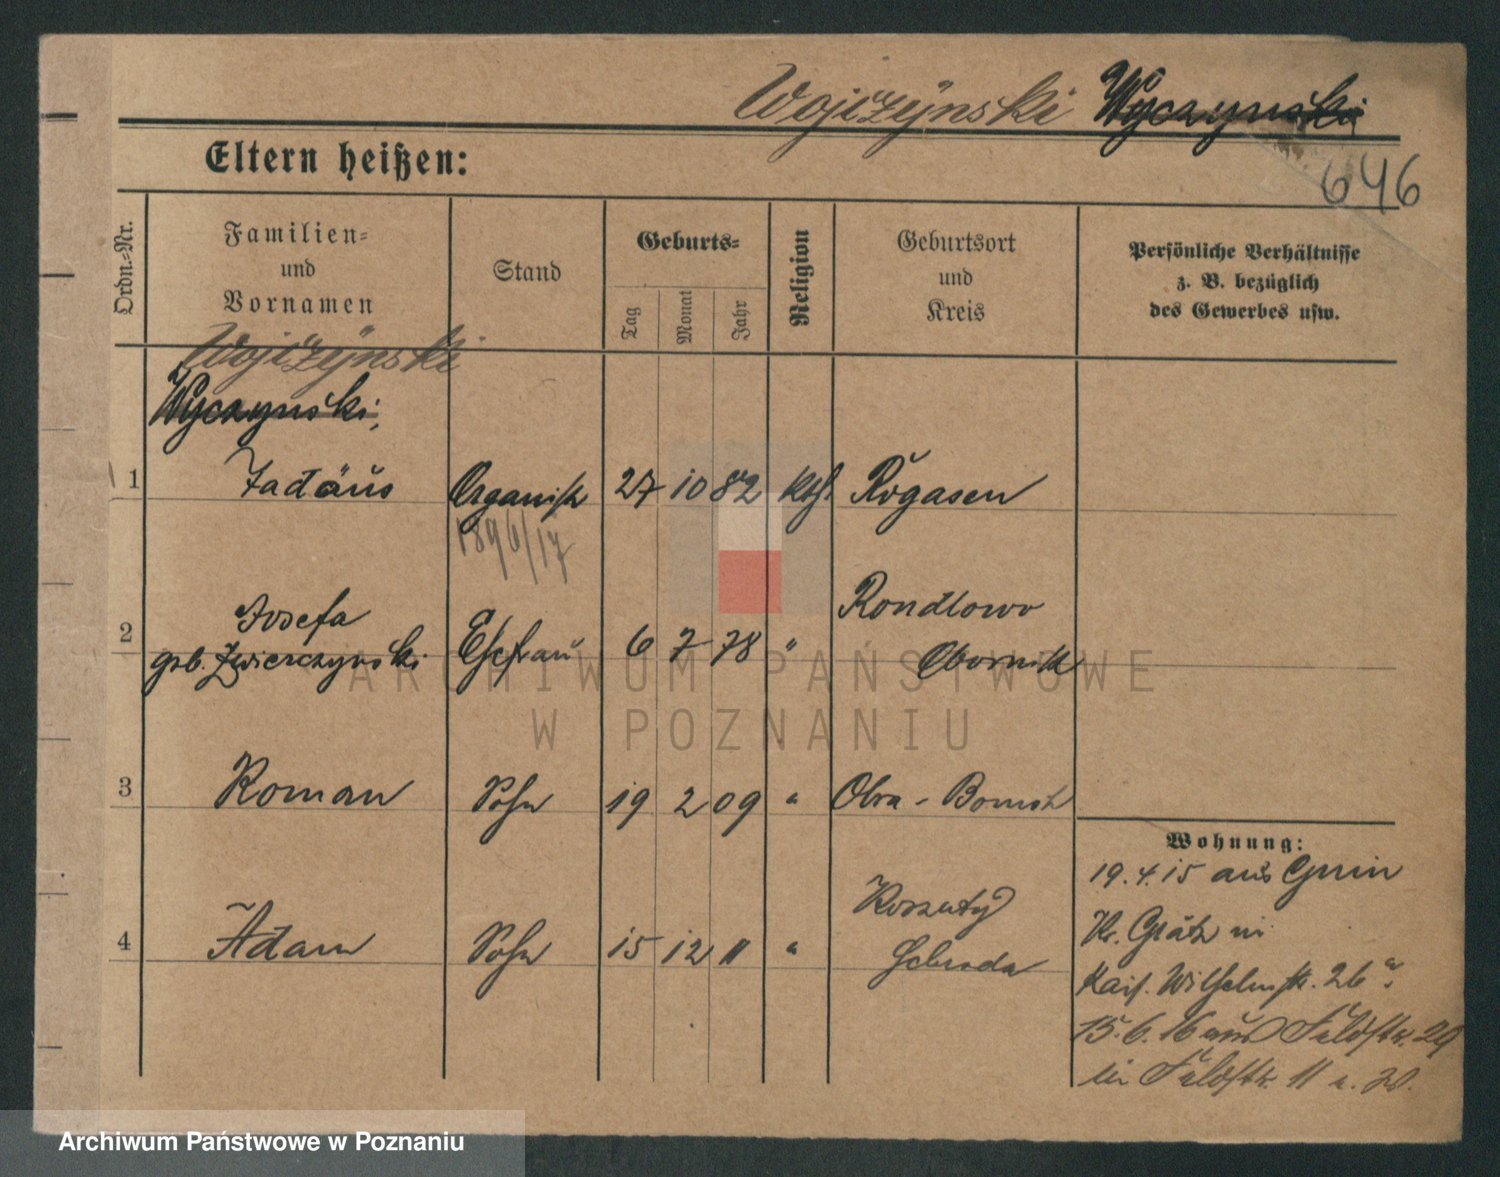 Wojczÿnski Wyczynski
646
Eltern heißen:
Ordn.-Nr.
Familien-
und
Vornamen
Stand
Geburts-
Tag
Monat
Jahr
Religion
Geburtsort
und
Kreis
Persönliche Verhältnisse
z. B. bezüglich
des Gewerbes usw.
Wojczÿnski
Wyczynski,
1 Tadäus Organist 27 10 82 kath. Rogasen
1896/17
Josefa Rondlowo
2 geb. Zwierczynski Ehefrau 6 7 78 " Obornik
3 Roman Sohn 19 2 09 " Obra - Bomst
Wohnung:
19.4.15 aus
Koszuty
Kr. Grätz in
4 Adam Sohn 15 12 11 "
Schroda
Kais. Wilhelmstr. 26
15.6.16 aus Feldstr. 29
in Feldstr. 11
ARCHIWUM PAŃSTWOWE
W POZNANIU
Archiwum Państwowe w Poznaniu